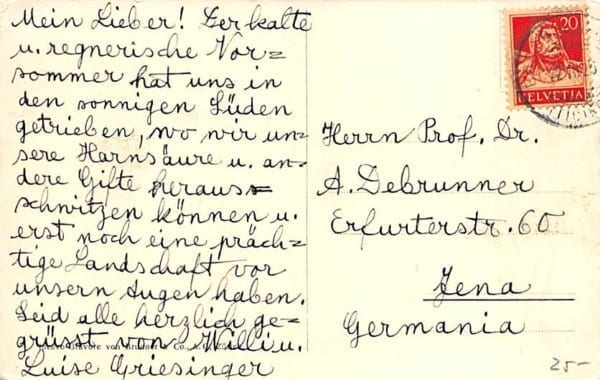 Mein Lieber! Der kalte
u. regnerische Vor=
sommer hat uns in
den sonnigen Süden
getrieben, wo wir un=
sere Harnsäure u. an=
dere Gifte heraus=
schwitzen können u.
erst noch eine präch=
tige Landschaft vor
unsern Augen haben.
Seid alle herzlich ge=
grüsst von Willi u.
Luise Griesinger
20
HELVETIA
Herrn Prof. Dr.
A. Debrunner
Erfurterstr. 60
Jena
Germania
25-